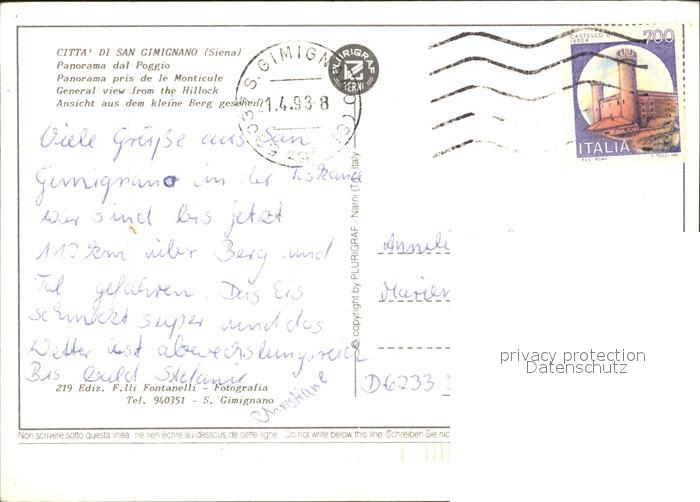 CITTA' DI SAN GIMIGNANO (Siena)
Panorama dal Poggio
Panorama pris de le Monticule
General view from the Hillock
Ansicht aus dem kleine Berg gesehen
S. GIMIGN
21.4.93-8
PLURIGRAF
NARNI
CASTELLO DI IVREA
700
ITALIA
Viele Grüße aus San
Gimignano in der Toskana
wir sind bis jetzt
112 km über Berg und
Tal gefahren. Das Eis
schmeckt super und das
Wetter ist abwechslungsreich
Bis bald Stefanie
Christiane
© copyright by PLURIGRAF - Narni (TR) Italy
Anneli
Marien
D6233
privacy protection
Datenschutz
219 Ediz. F.lli Fontanelli - Fotografia
Tel. 940351 - S. Gimignano
Non scrivere sotto questa linea - ne rien écrire au-dessous de cette ligne - Do not write below this line - Schreiben Sie nic